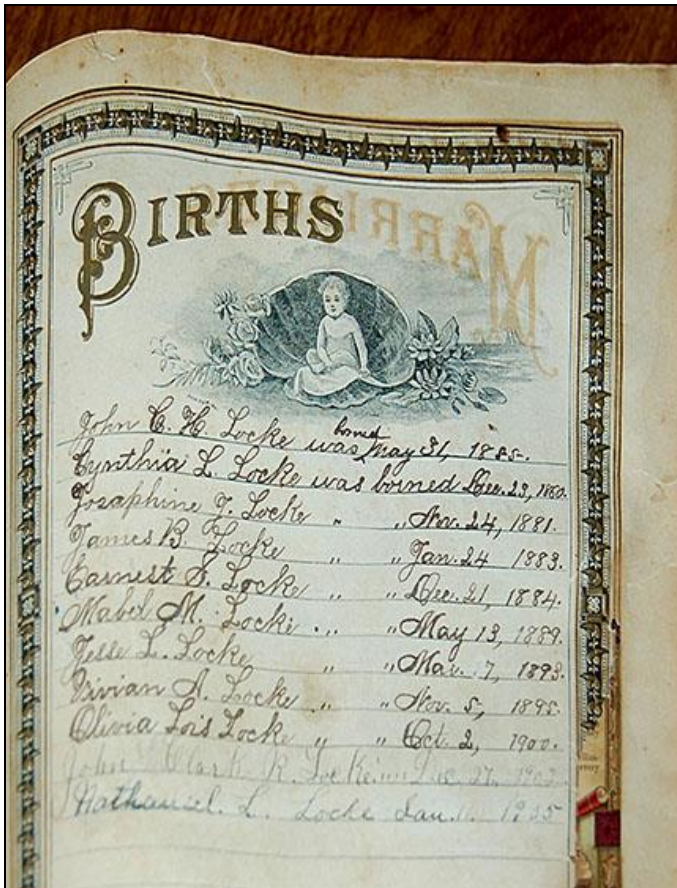 BIRTHS
MARRIAGES
borned
John C. H. Locke was May 31, 1855.
Cynthia L. Locke was borned Dec. 23, 1860.
Josaphine J. Locke " " Nov. 24, 1881.
James B. Locke " " Jan. 24 1883.
Earnest S. Locke " " Dec. 21, 1884.
Mabel M. Locke " " May 13, 1889.
Jesse L. Locke " " Mar. 7, 1893.
Vivian A. Locke " " Nov. 5, 1895.
Olivia Lois Locke " " Oct. 2, 1900.
John Clark R. Locke Dec. 27, 1903
Nathaniel. L. Locke Jan.